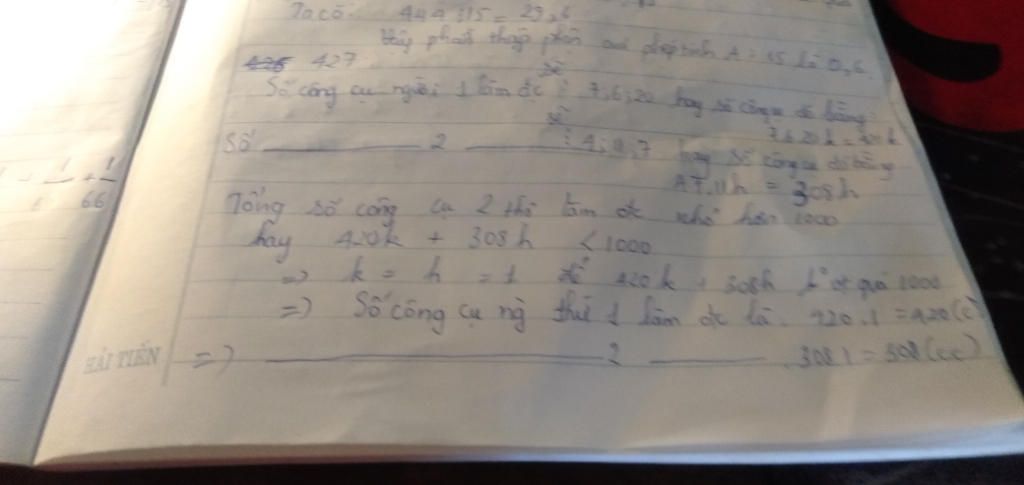 Ta có: 444:15 = 29,6
Vậy phần thập phân của phép tính A : 15 là 0,6.
427
Số công cụ người 1 làm đc sẽ ⋮ 7,6,20 hay số công cụ đó bằng
Số ——— 2 ——— sẽ ⋮ 4, 7 hay số công cụ đó bằng
.11h = 308h
Tổng số công cụ 2 thợ làm đc nhỏ hơn 1000
hay 420k + 308h < 1000
=> k = h = 1 để 420k + 308h k° đc quá 1000
=> Số công cụ ng thứ 1 làm đc là. 420.1 = 420(cc)
HẢI TIẾN
=> ——— 2 ——— .308.1 = 308(cc)
1 + 1
66